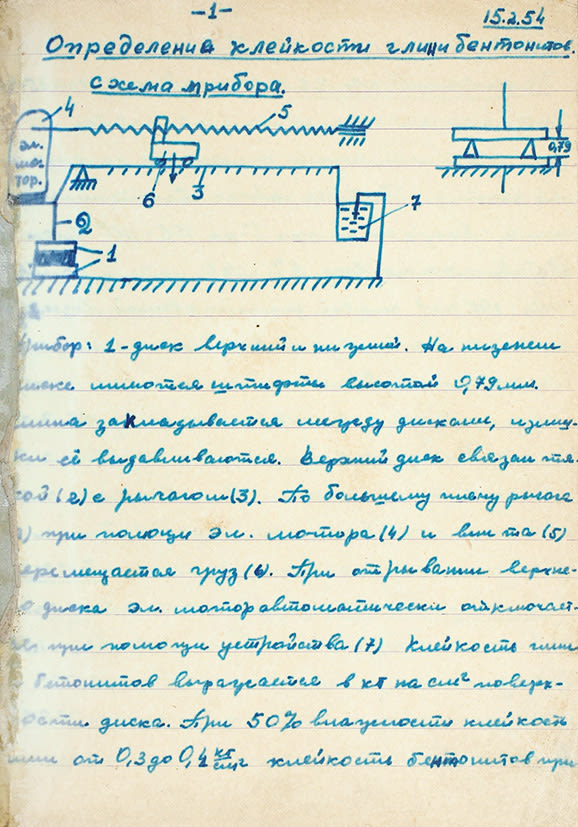 -1-
15.2.54
Определения клейкости глин и бентонитов.
схема прибора.
4
5
эл.
мо-
тор.
0,79
6
3
7
2
1
прибор: 1-диск верхний и нижний. На нижнем
диске имеются штифты высотой 0,79 мм.
глина закладывается между дисками, излиш-
ки её выдавливаются. Верхний диск связан тя-
гой (2) с рычагом (3). По большему плечу рычага
при помощи эл. мотора (4) и винта (5)
перемещается груз (6). При отрывании верхне-
го диска эл. мотор автоматически отключает-
ся при помощи устройства (7) Клейкость глин
бетонитов выражается в кг на см² поверх-
ности диска. При 50% влажности клейкость
глин от 0,3 до 0,4 кг/см² клейкость бентонитов при